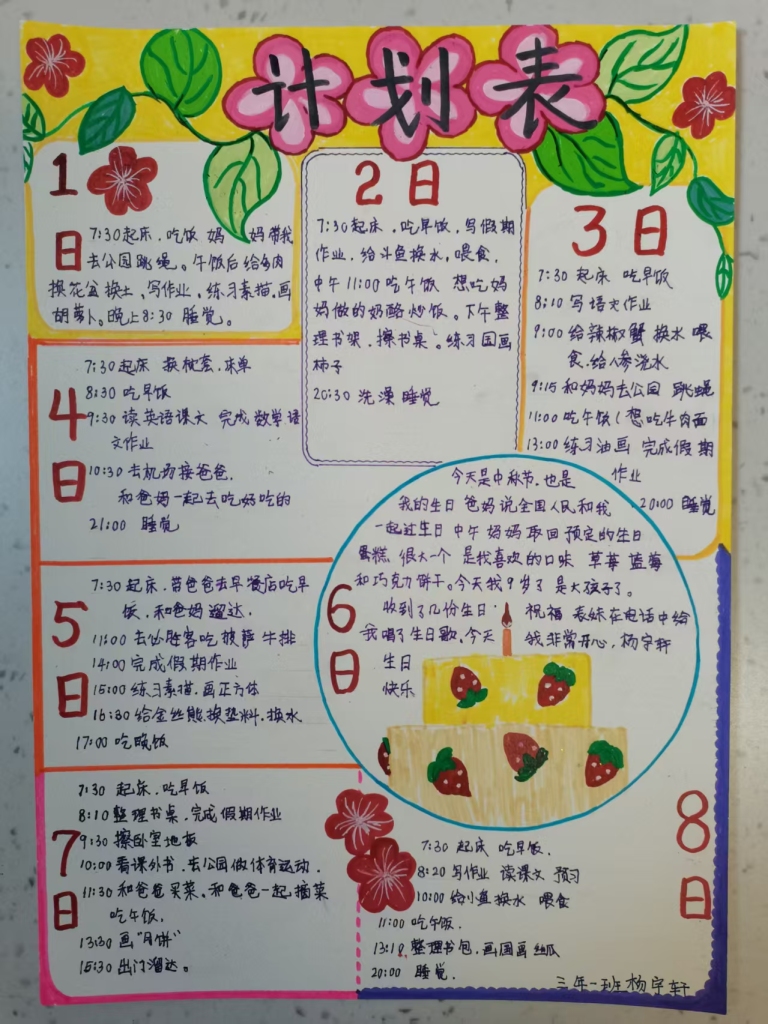 计划表
1日
7:30起床、吃饭 妈妈带我
去公园跳绳。午饭后给多肉
换花盆换土、写作业、练习素描、画
胡萝卜。晚上8:30 睡觉。
2日
7:30起床、吃早饭、写假期
作业、给斗鱼换水、喂食、
中午11:00吃午饭 想吃妈
妈做的奶酪炒饭。下午整
理书架、擦书桌。练习国画
柿子
20:30 洗澡睡觉
3日
7:30 起床 吃早饭
8:10 写语文作业
9:00 给辣椒蟹 换水 喂
食、给人参浇水
9:15 和妈妈去公园 跳绳
11:00 吃午饭(想吃牛肉面
13:00 练习油画 完成假期
作业
20:00 睡觉
4日
7:30 起床 换枕套、床单
8:30 吃早饭
9:30 读英语课文 完成数学语
文作业
10:30 去机场接爸爸,
和爸妈一起去吃好吃的
21:00 睡觉
5日
7:30 起床、
爸爸去早餐店吃早
饭、和爸妈遛达、
11:00 去必胜客吃披萨 牛排
14:00 完成假期作业
15:00 练习素描、画正方体
16:30 给金丝熊换垫料、换水
17:00 吃晚饭
6日
今天是中秋节、也是
我的生日 爸妈说全国人民和我
一起过生日 中午 妈妈取回预定的生日
蛋糕 很大一个 是我喜欢的口味 草莓 蓝莓
和巧克力饼干。今天我9岁了 是大孩子了。
收到了几份生日 祝福 表妹在电话中给
我唱了生日歌、今天 我非常开心,杨宇轩
生日
快乐
7日
7:30 起床、吃早饭
8:10 整理书桌、完成假期作业
9:30 擦卧室地板
10:00 看课外书、去公园做体育运动、
11:30 和爸爸买菜、和爸爸一起摘菜
吃午饭、
13:30 画"月饼"
15:30 出门溜达。
8日
7:30 起床 吃早饭、
8:20 写作业 读课文 预习
10:00 给小鱼换水 喂食
11:00 吃午饭、
13:10 整理书包、画国画丝瓜
20:00 睡觉、
三年一班杨宇轩